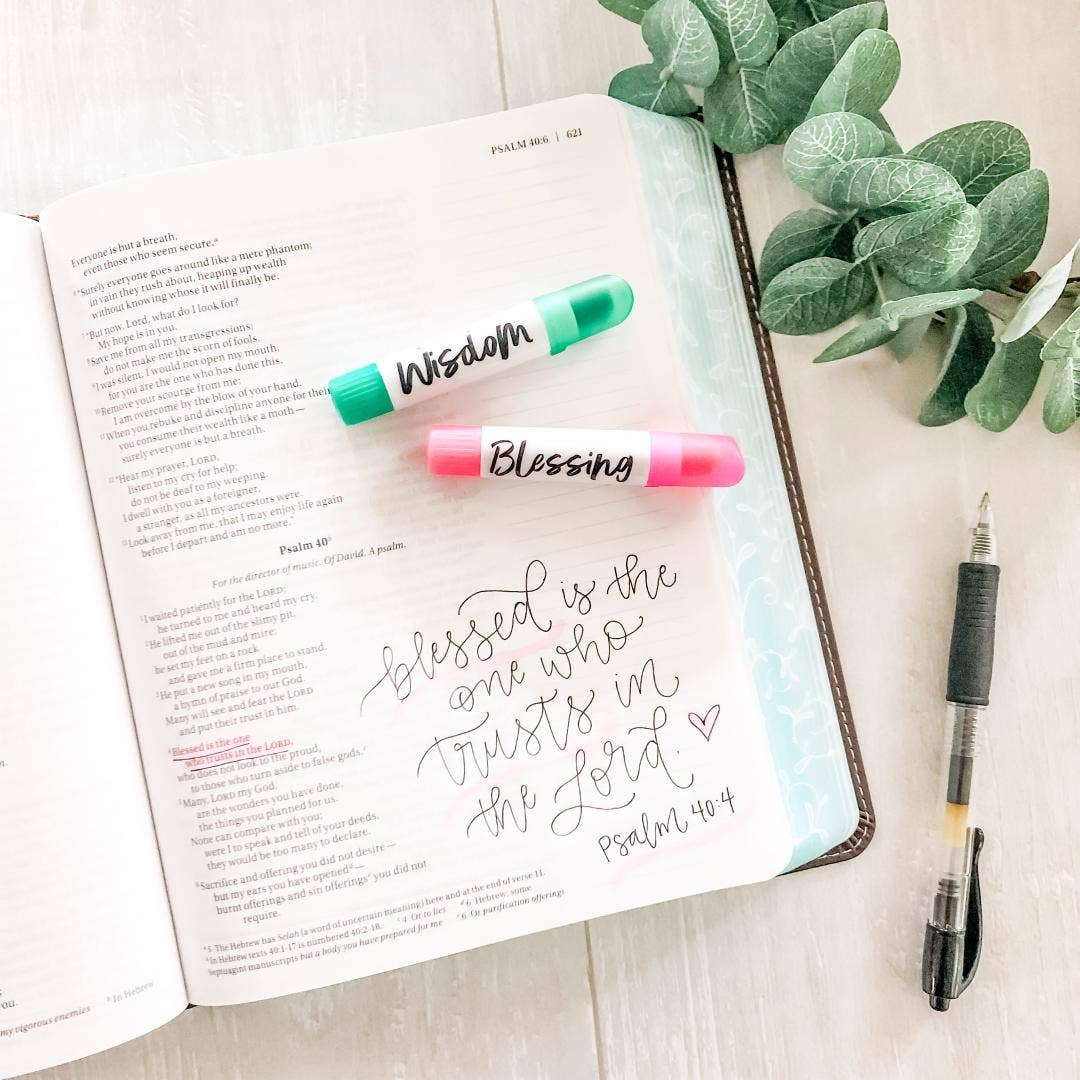 PSALM 40:6 | 621
Everyone is but a breath,
even those who seem secure.ᵃ
⁶“Surely everyone goes around like a mere phantom;
in vain they rush about, heaping up wealth
without knowing whose it will finally be.
⁷“But now, Lord, what do I look for?
My hope is in you.
⁸Save me from all my transgressions;
do not make me the scorn of fools.
⁹I was silent; I would not open my mouth,
for you are the one who has done this.
¹⁰Remove your scourge from me;
I am overcome by the blow of your hand.
¹¹When you rebuke and discipline anyone for their
you consume their wealth like a moth—
surely everyone is but a breath.
¹²“Hear my prayer, LORD,
listen to my cry for help;
do not be deaf to my weeping.
I dwell with you as a foreigner,
a stranger, as all my ancestors were.
¹³Look away from me, that I may enjoy life again
before I depart and am no more.”
Psalm 40ᵇ
For the director of music. Of David. A psalm.
¹I waited patiently for the LORD;
he turned to me and heard my cry.
²He lifted me out of the slimy pit,
out of the mud and mire;
he set my feet on a rock
and gave me a firm place to stand.
³He put a new song in my mouth,
a hymn of praise to our God.
Many will see and fear the LORD
and put their trust in him.
⁴Blessed is the one
who trusts in the LORD,
who does not look to the proud,
to those who turn aside to false gods.ᶜ
⁵Many, LORD my God,
are the wonders you have done,
the things you planned for us.
None can compare with you;
were I to speak and tell of your deeds,
they would be too many to declare.
⁶Sacrifice and offering you did not desire—
but my ears you have openedᵈ—
burnt offerings and sin offeringsᵉ you did not
require.
ᵃ5 The Hebrew has Selah (a word of uncertain meaning) here and at the end of verse 11.
ᵇIn Hebrew texts 40:1-17 is numbered 40:2-18. ᶜ4 Or to lies ᵈ6 Hebrew; some
Septuagint manuscripts but a body you have prepared for me ᵉ6 Or purification offerings
Wisdom
Blessing
blessed is the
one who
trusts in
the Lord.
psalm 40:4
you.
my vigorous enemies
ᵇ In Hebrew